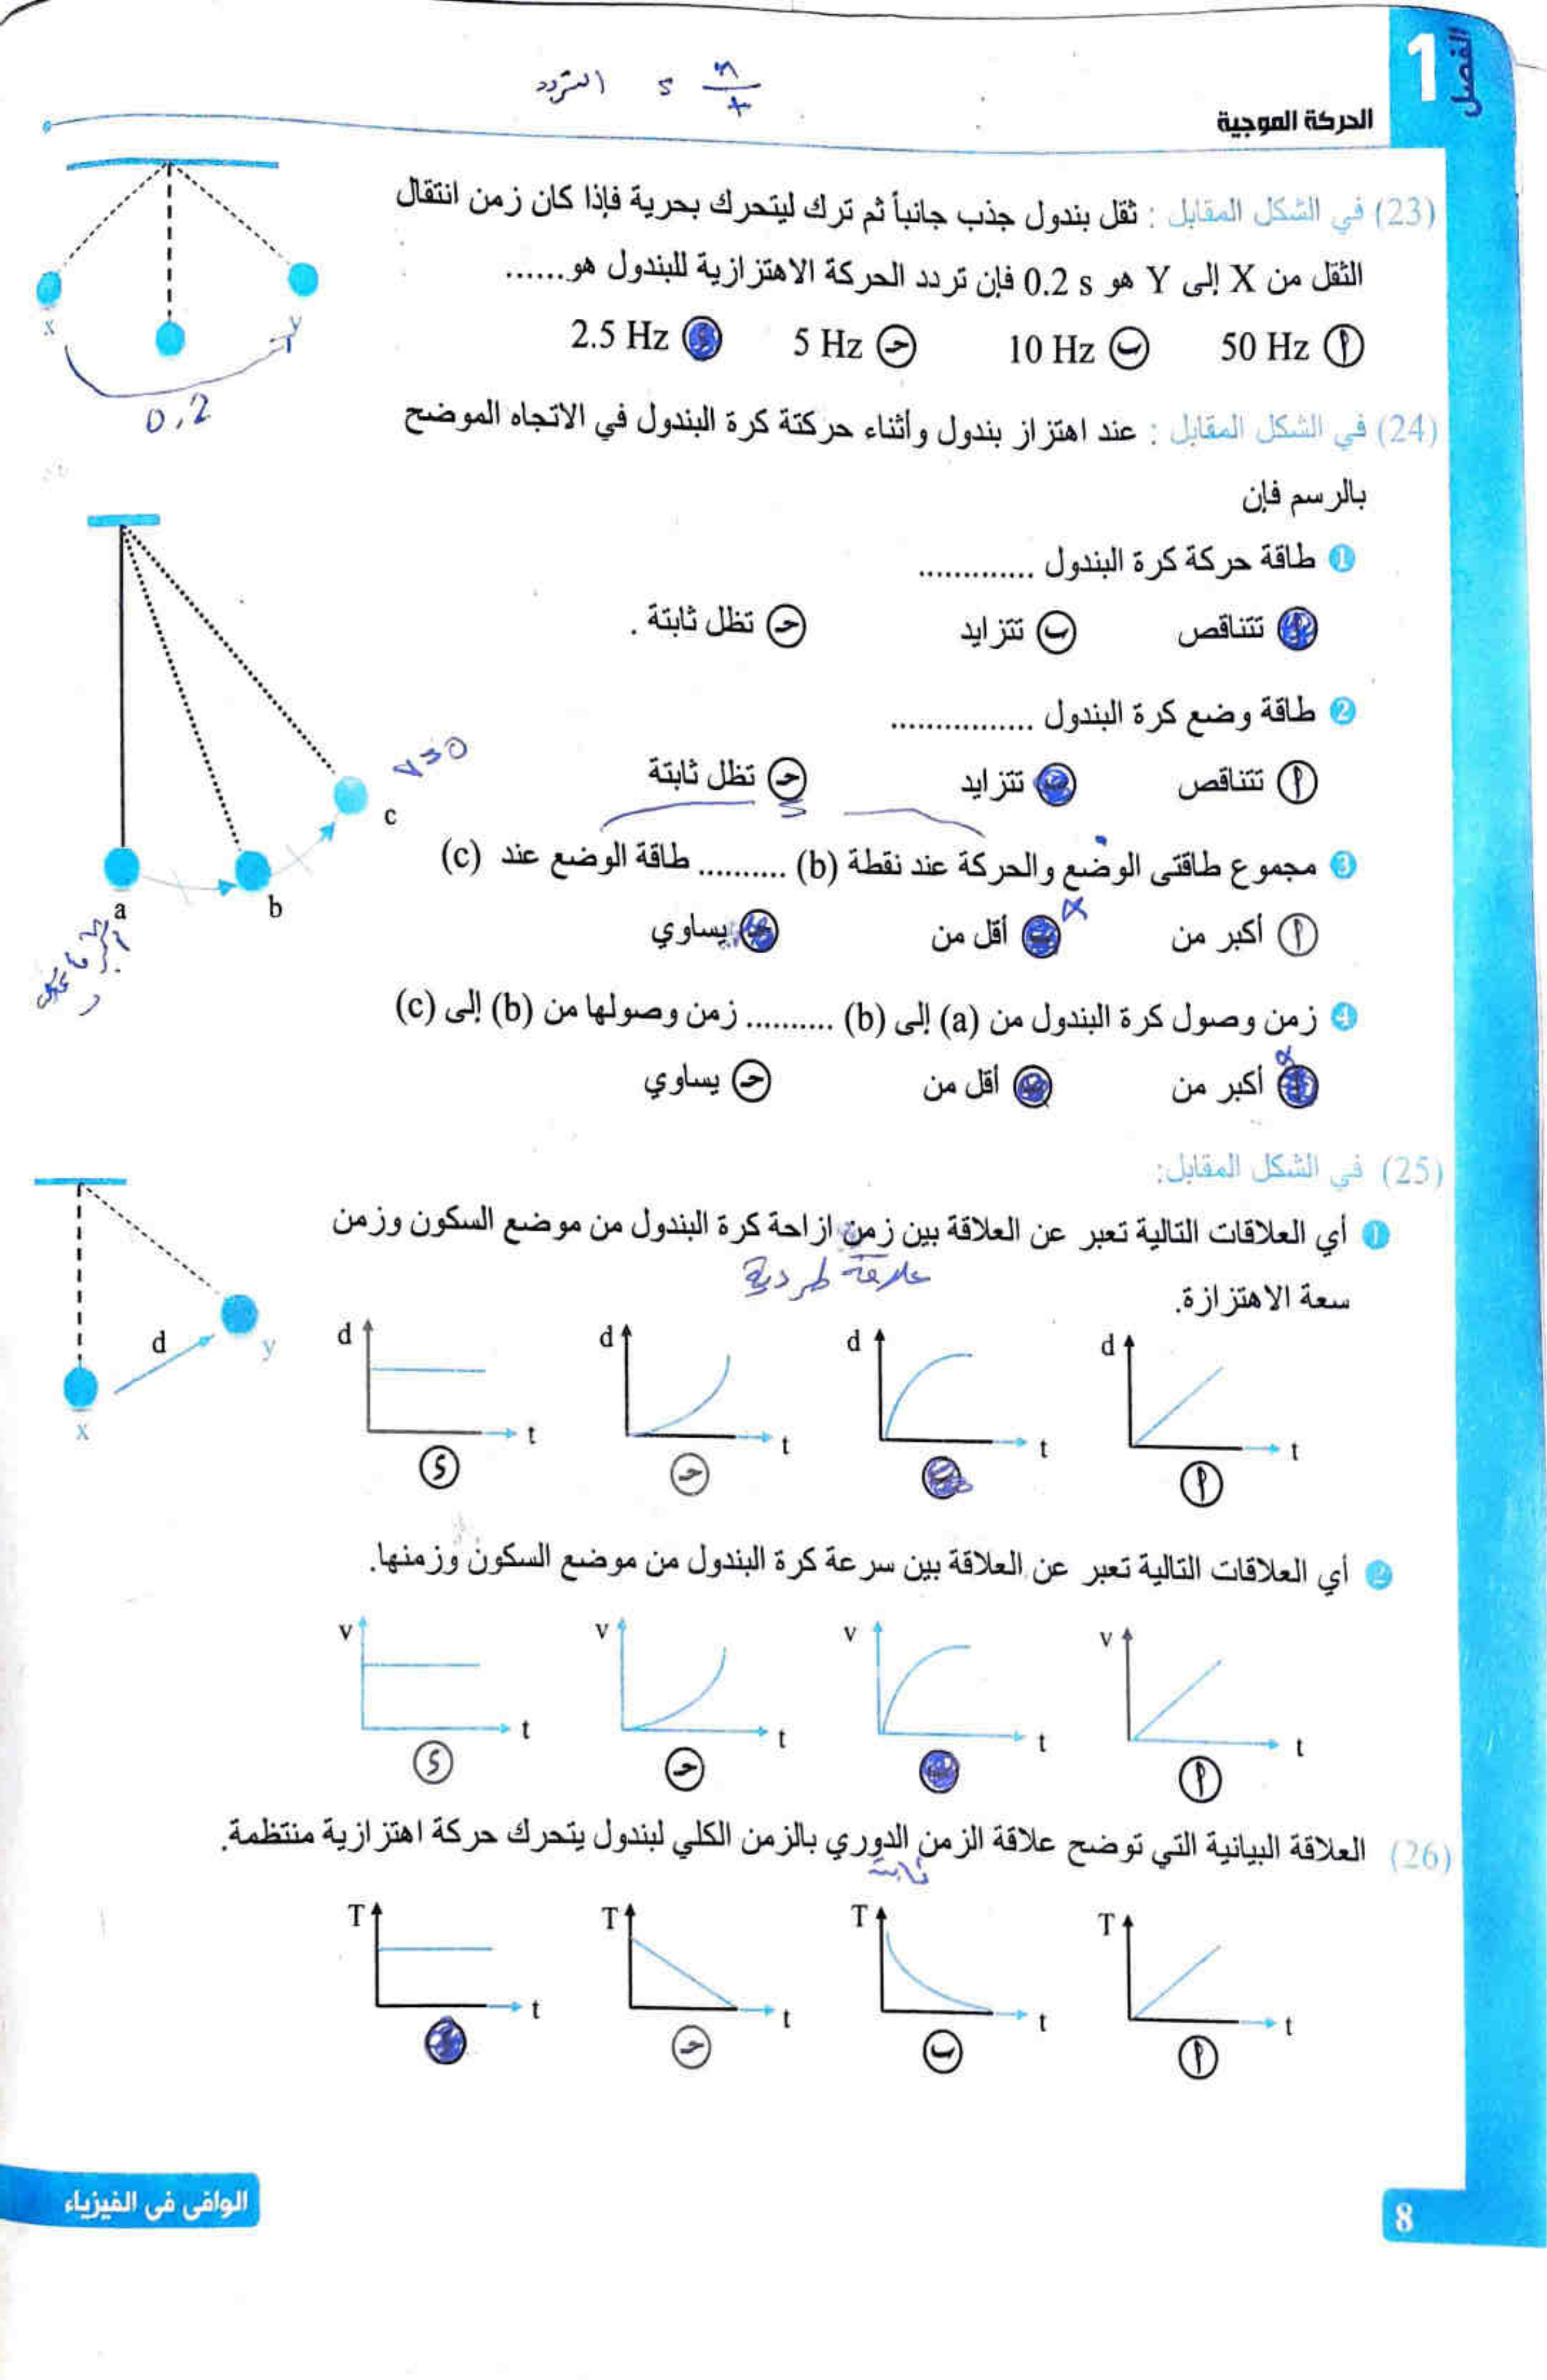 الفصل 1
الحركة الموجية
التردد = n/t
(23) في الشكل المقابل : ثقل بندول جذب جانباً ثم ترك ليتحرك بحرية فإذا كان زمن انتقال
الثقل من X إلى Y هو 0.2 s فإن تردد الحركة الاهتزازية للبندول هو......
أ 50 Hz ب 10 Hz حـ 5 Hz 2.5 Hz
x y
0,2
(24) في الشكل المقابل : عند اهتزاز بندول وأثناء حركتة كرة البندول في الاتجاه الموضح
بالرسم فإن
1 طاقة حركة كرة البندول .............
تتناقص ب تتزايد حـ تظل ثابتة .
2 طاقة وضع كرة البندول ................
أ تتناقص تتزايد حـ تظل ثابتة
v=0
c
a b
3 مجموع طاقتى الوضع والحركة عند نقطة (b) .......... طاقة الوضع عند (c)
أ أكبر من أقل من يساوي
4 زمن وصول كرة البندول من (a) إلى (b) .......... زمن وصولها من (b) إلى (c)
أكبر من أقل من حـ يساوي
(25) في الشكل المقابل:
1 أي العلاقات التالية تعبر عن العلاقة بين زمن ازاحة كرة البندول من موضع السكون وزمن
علاقة طردية
سعة الاهتزازة.
d y x
d t d t d t d t
أ حـ د
2 أي العلاقات التالية تعبر عن العلاقة بين سرعة كرة البندول من موضع السكون وزمنها.
v t v t v t v t
أ حـ د
(26) العلاقة البيانية التي توضح علاقة الزمن الدوري بالزمن الكلي لبندول يتحرك حركة اهتزازية منتظمة.
ثابت
T t T t T t T t
أ ب حـ
الوافى فى الفيزياء
8